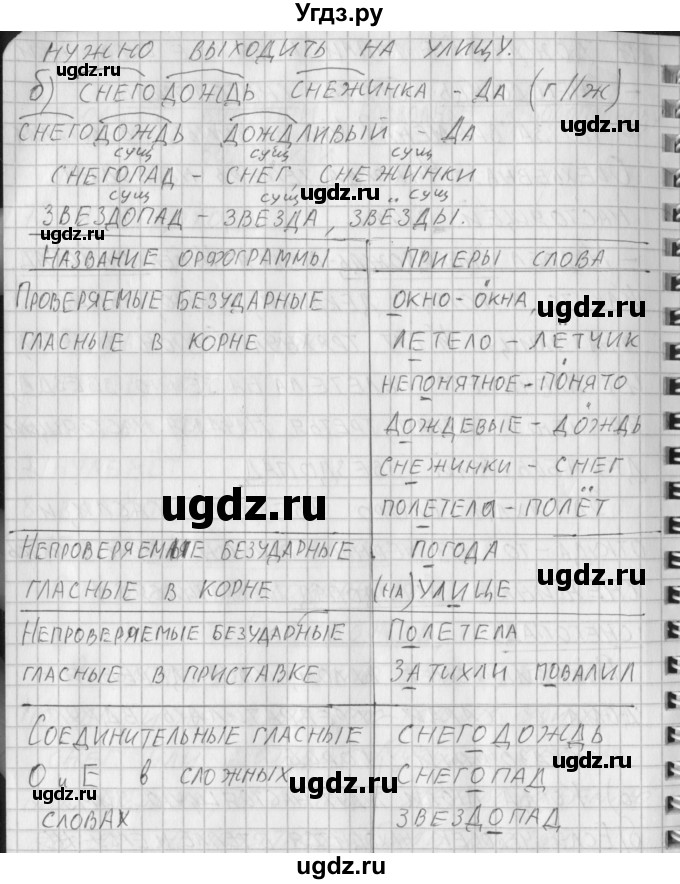 Угдз.ру
НУЖНО ВЫХОДИТЬ НА УЛИЦУ.
б) СНЕГОДОЖДЬ СНЕЖИНКА - ДА (Г//Ж)
СНЕГОДОЖДЬ ДОЖДЛИВЫЙ - ДА
сущ сущ сущ
СНЕГОПАД - СНЕГ, СНЕЖИНКИ
ugdz.ru
сущ сущ сущ
ЗВЕЗДОПАД - ЗВЕЗДА, ЗВЁЗДЫ.
ugdz.ru
НАЗВАНИЕ ОРФОГРАММЫ ПРИЕРЫ СЛОВА
ПРОВЕРЯЕМЫЕ БЕЗУДАРНЫЕ ОКНО - ОКНА,
ugdz.ru
ГЛАСНЫЕ В КОРНЕ ЛЕТЕЛО - ЛЁТЧИК
НЕПОНЯТНОЕ - ПОНЯТО
ДОЖДЕВЫЕ - ДОЖДЬ
СНЕЖИНКИ - СНЕГ
ugdz.ru
ПОЛЕТЕЛА - ПОЛЁТ
НЕПРОВЕРЯЕМЫЕ БЕЗУДАРНЫЕ ПОГОДА
ugdz.ru
ГЛАСНЫЕ В КОРНЕ (НА) УЛИЦЕ
НЕПРОВЕРЯЕМЫЕ БЕЗУДАРНЫЕ ПОЛЕТЕЛА
ГЛАСНЫЕ В ПРИСТАВКЕ ЗАТИХЛИ ПОВАЛИЛ
СОЕДИНИТЕЛЬНЫЕ ГЛАСНЫЕ СНЕГОДОЖДЬ
ugdz.ru
О и Е В СЛОЖНЫХ СНЕГОПАД
ugdz.ru
СЛОВАХ ЗВЕЗДОПАД
ugdz.ru
ugdz.ru